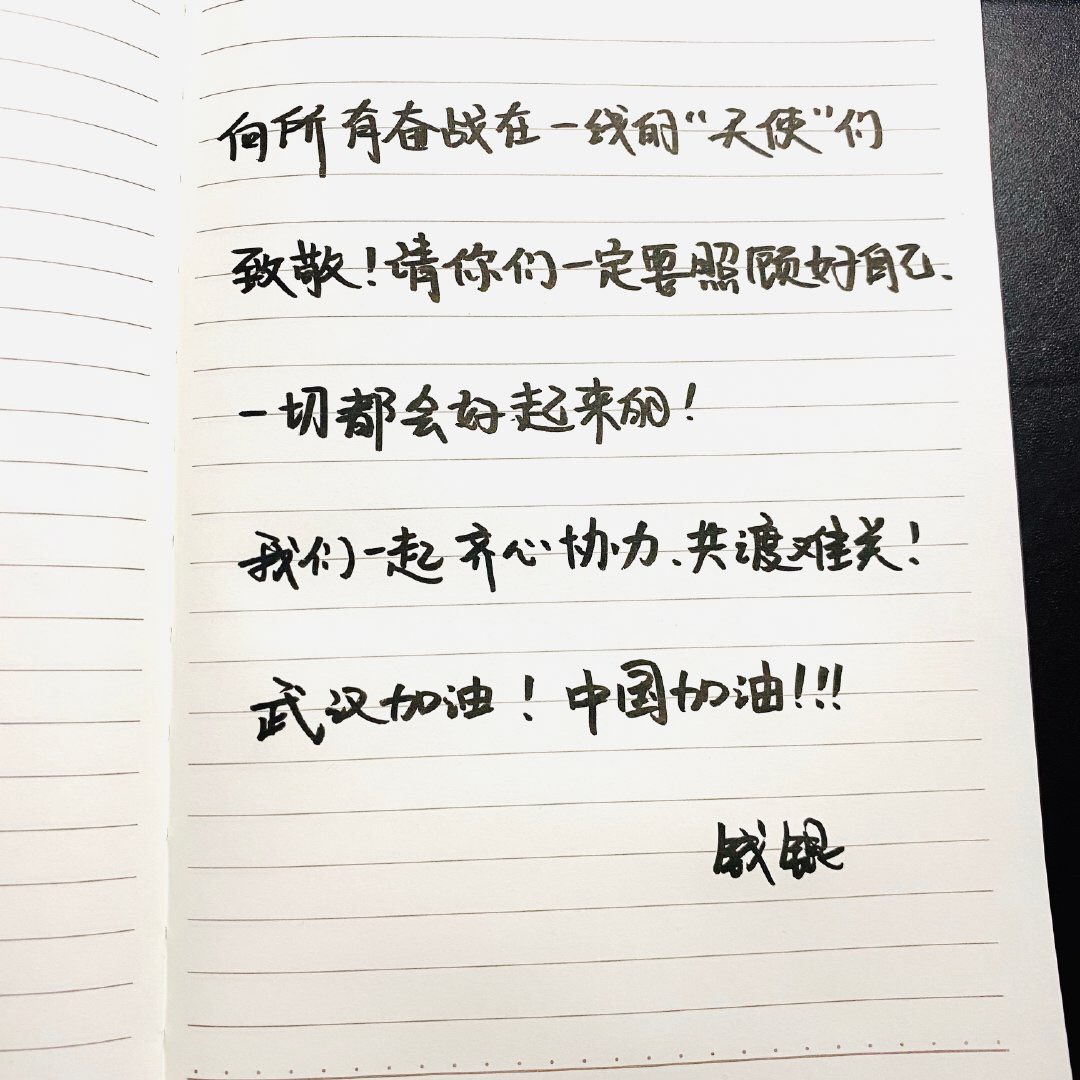 向所有奋战在一线的“天使”们
致敬！请你们一定要照顾好自己、
一切都会好起来的！
我们一起齐心协力、共渡难关！
武汉加油！中国加油！！！
钱银